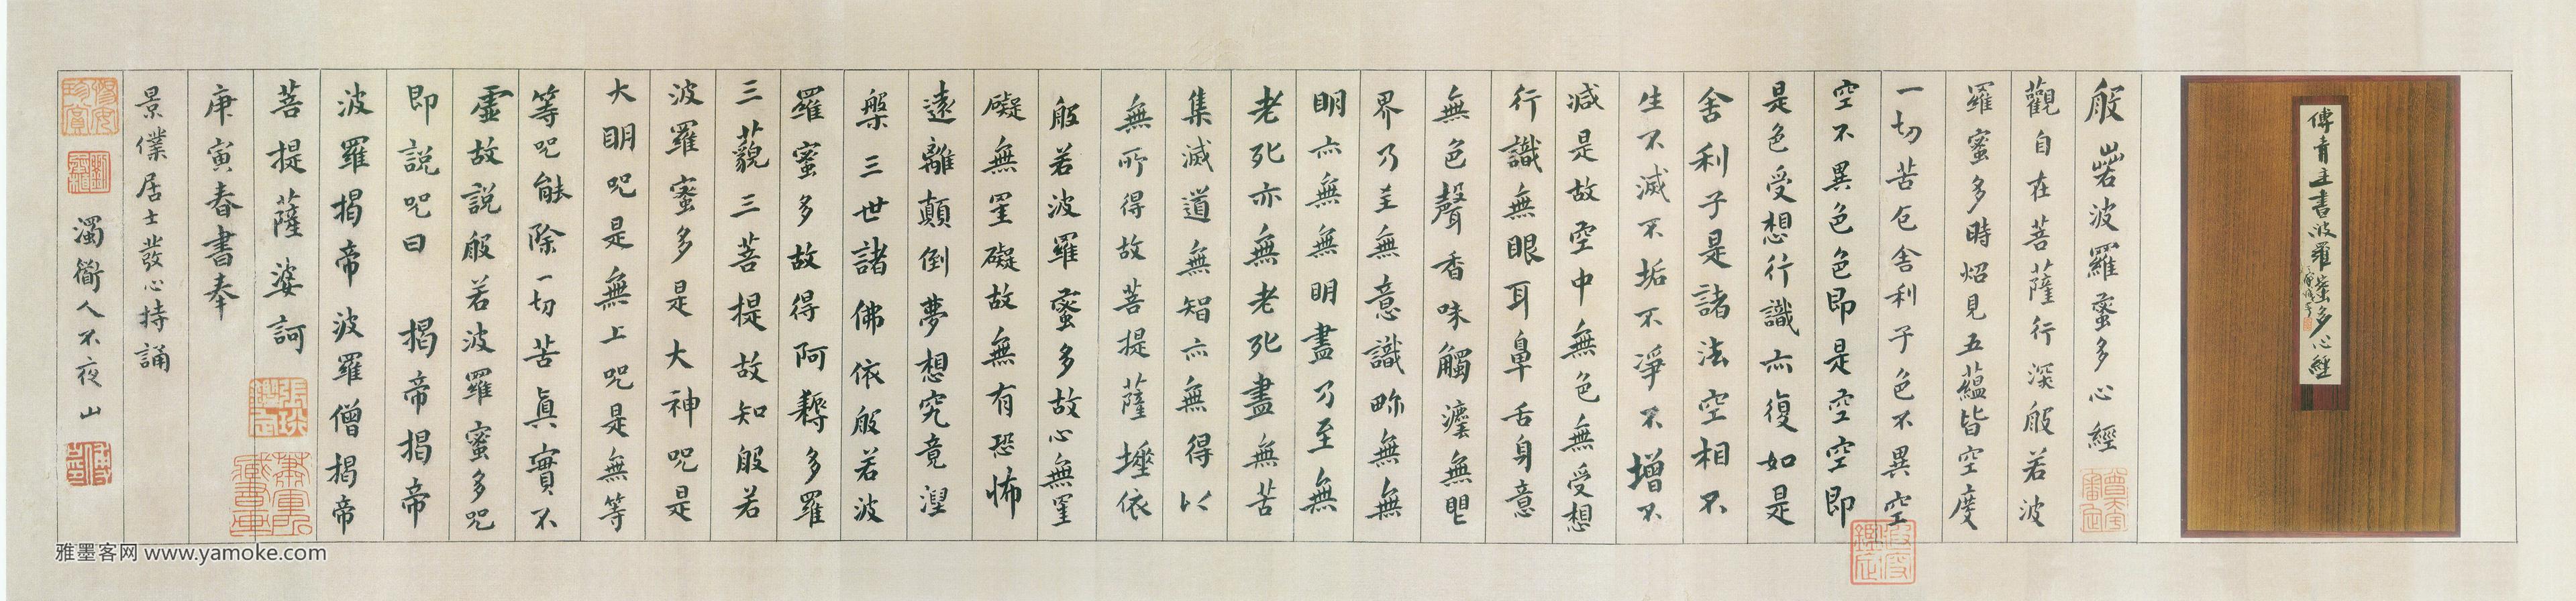 傅青主書波羅蜜多心經
般㟧波羅蜜多心經
觀自在菩薩行深般若波
羅蜜多時炤見五蘊皆空度
一切苦厄舍利子色不異空
空不異色色即是空空即
是色受想行識亦復如是
舍利子是諸法空相不
生不滅不垢不淨不增不
減是故空中無色無受想
行識無眼耳鼻舌身意
無色聲香味觸灋無眼
界乃至無意識眎無無
明亦無無明盡乃至無
老死亦無老死盡無苦
集滅道無智亦無得以
無所得故菩提薩埵依
般若波羅蜜多故心無罣
礙無罣礙故無有恐怖
遠離顛倒夢想究竟湼
槃三世諸佛依般若波
羅蜜多故得阿耨多羅
三藐三菩提故知般若
波羅蜜多是大神咒是
大明咒是無上咒是無等
等咒能除一切苦真實不
虛故説般若波羅蜜多咒
即説咒曰 揭帝揭帝
波羅揭帝波羅僧揭帝
菩提薩婆訶
庚寅春書奉
景僕居士發心持誦
濁衜人不夜山
雅墨客网 www.yamoke.com